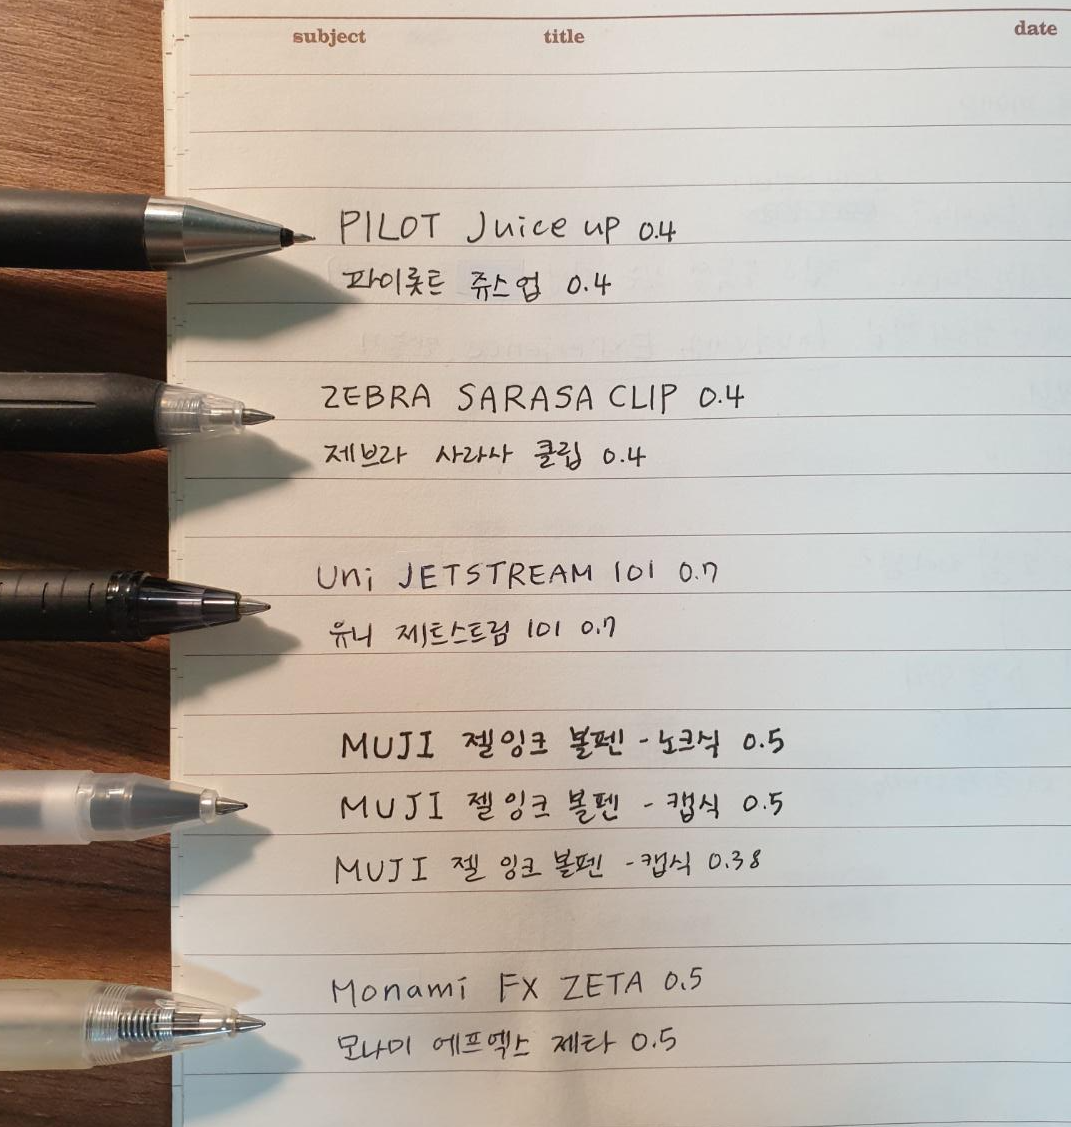 subject title date
PILOT Juice up 0.4
파이롯트 쥬스업 0.4
ZEBRA SARASA CLIP 0.4
제브라 사라사 클립 0.4
Uni JETSTREAM 101 0.7
유니 제트스트림 101 0.7
MUJI 젤잉크 볼펜 - 노크식 0.5
MUJI 젤잉크 볼펜 - 캡식 0.5
MUJI 젤 잉크 볼펜 - 캡식 0.38
Monami FX ZETA 0.5
모나미 에프엑스 제타 0.5